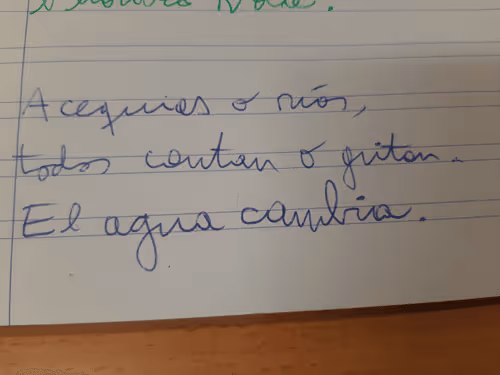 Acequias o ríos,
todos cantan o gritan.
El agua cambia.